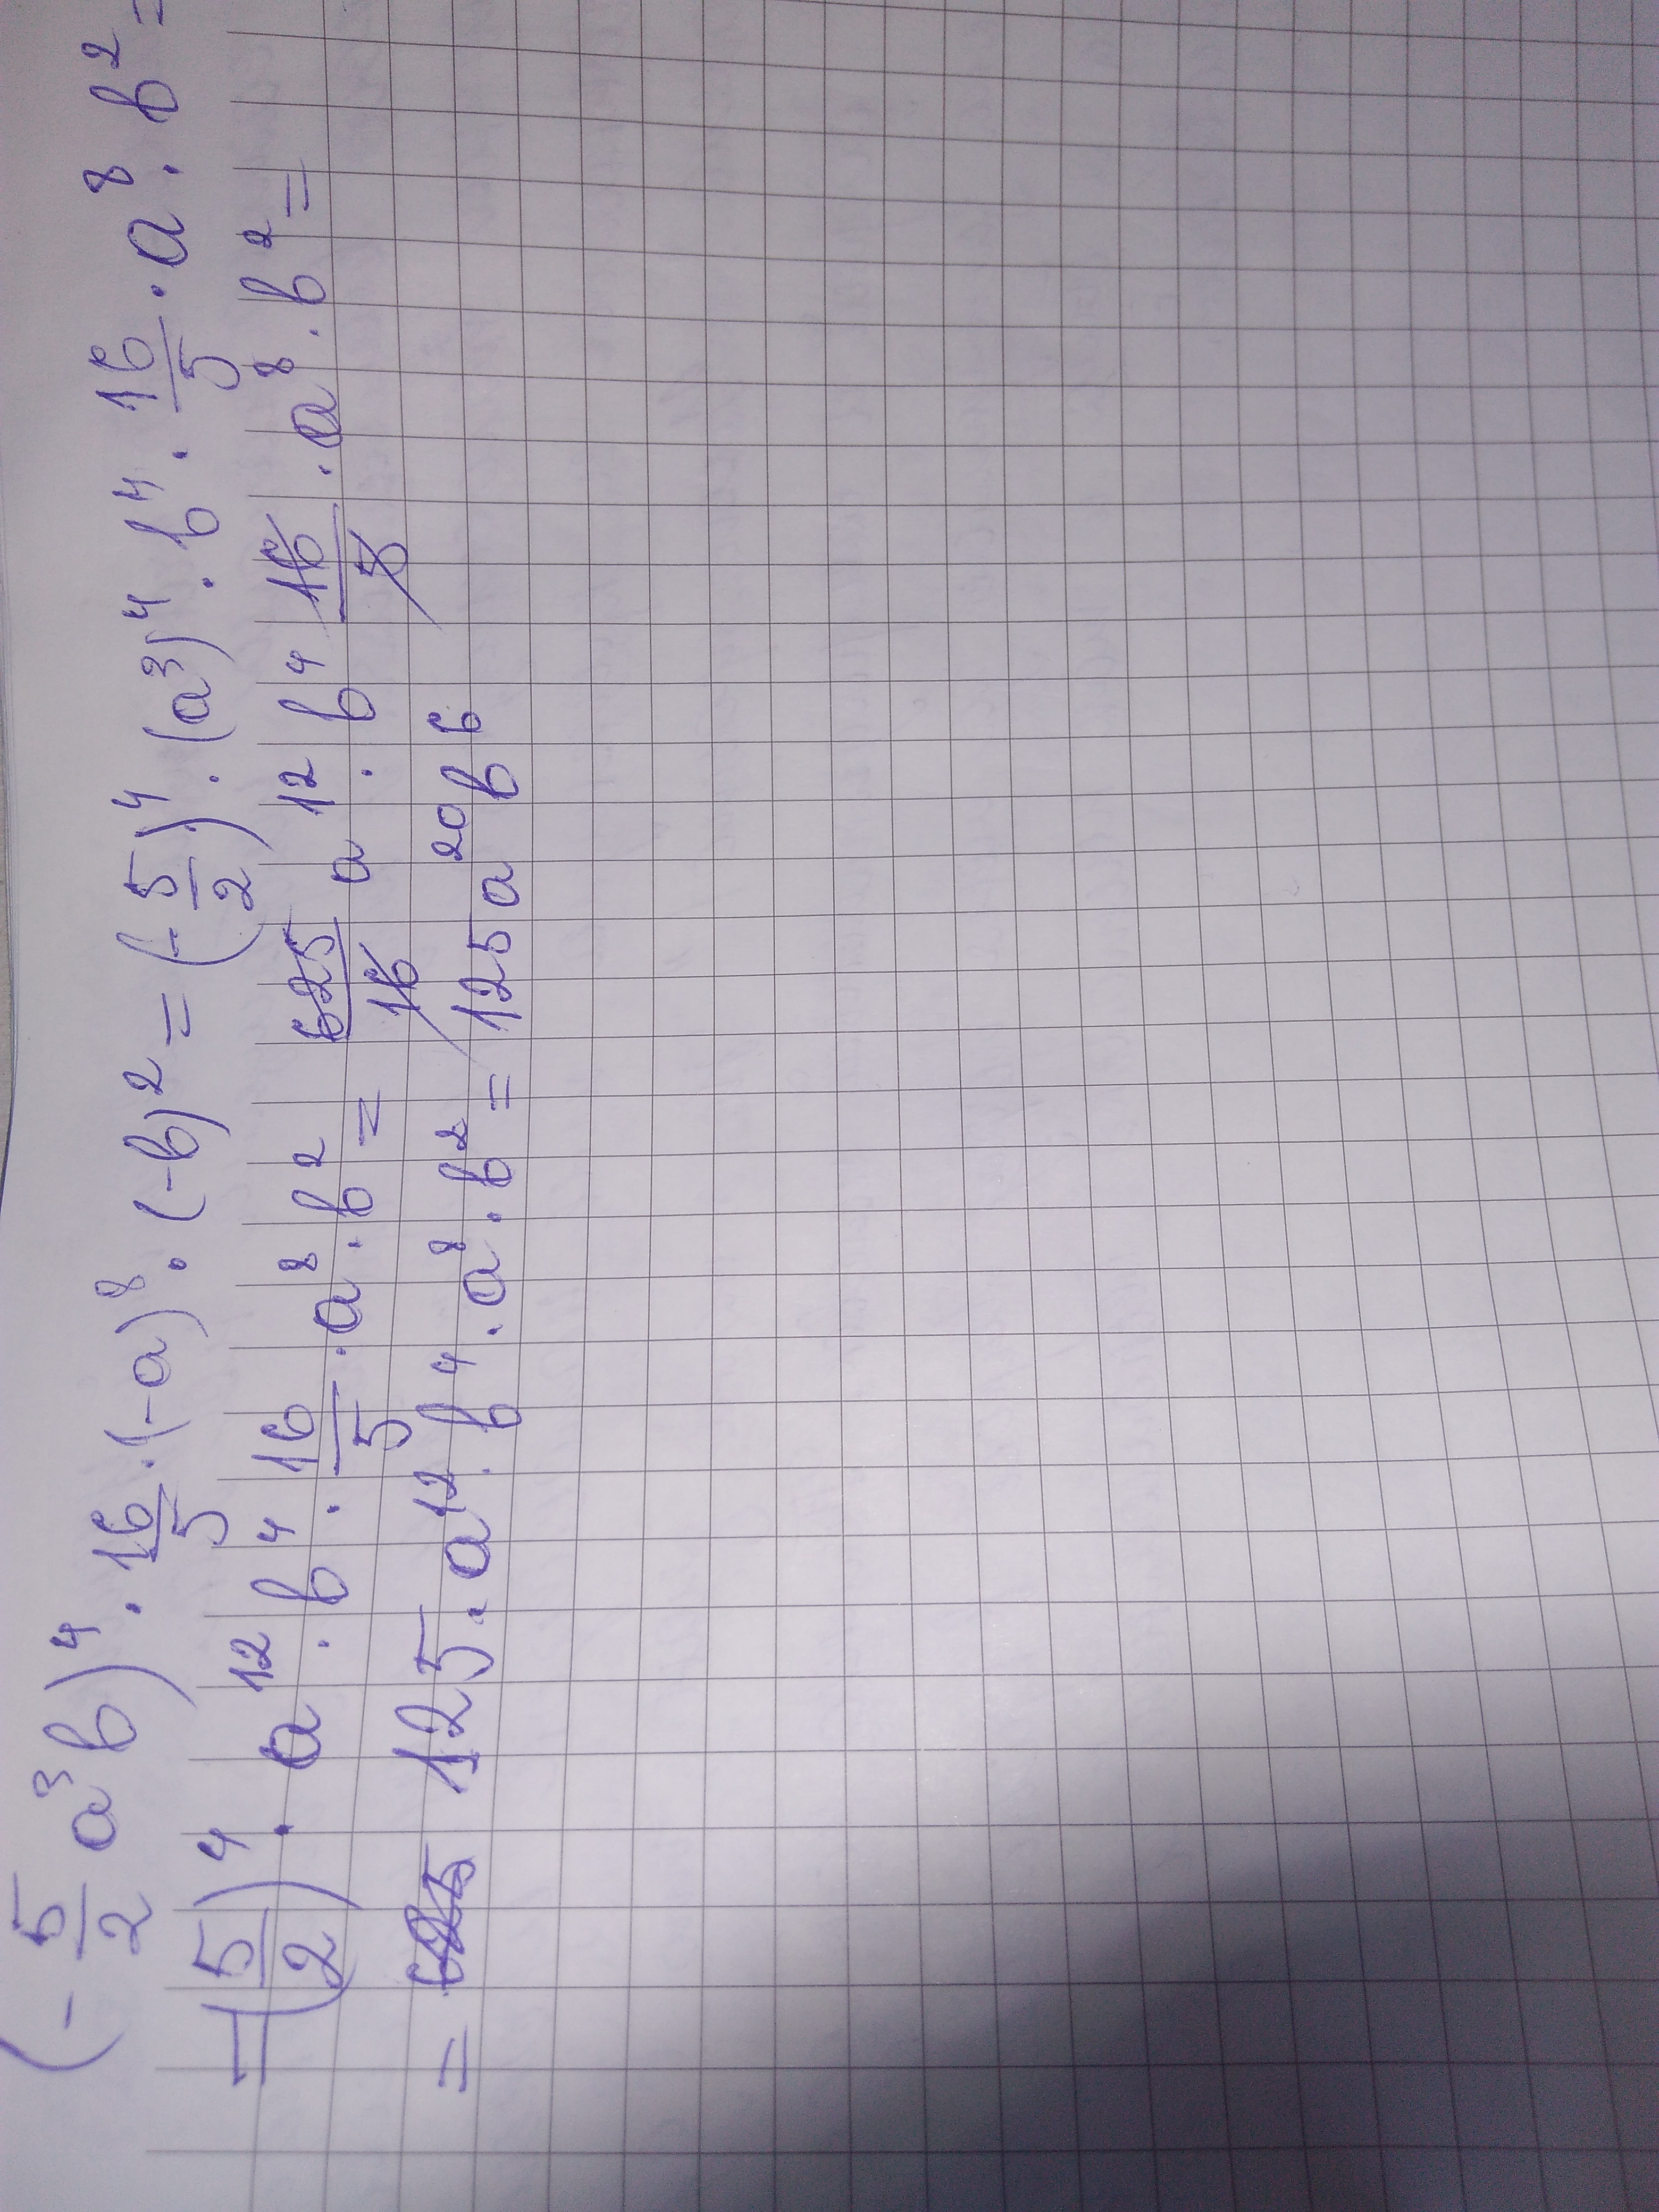 (-5/2 a³b)⁴ · 16/5 · (-a)⁸ · (-b)² = (-5/2)⁴ · (a³)⁴ · b⁴ · 16/5 · a⁸ · b² =
=(5/2)⁴ · a¹² · b⁴ · 16/5 · a⁸ · b² = 625/16 a¹² · b⁴ 16/5 · a⁸ · b² =
= 125 · a¹² · b⁴ · a⁸ · b² = 125a²⁰b⁶